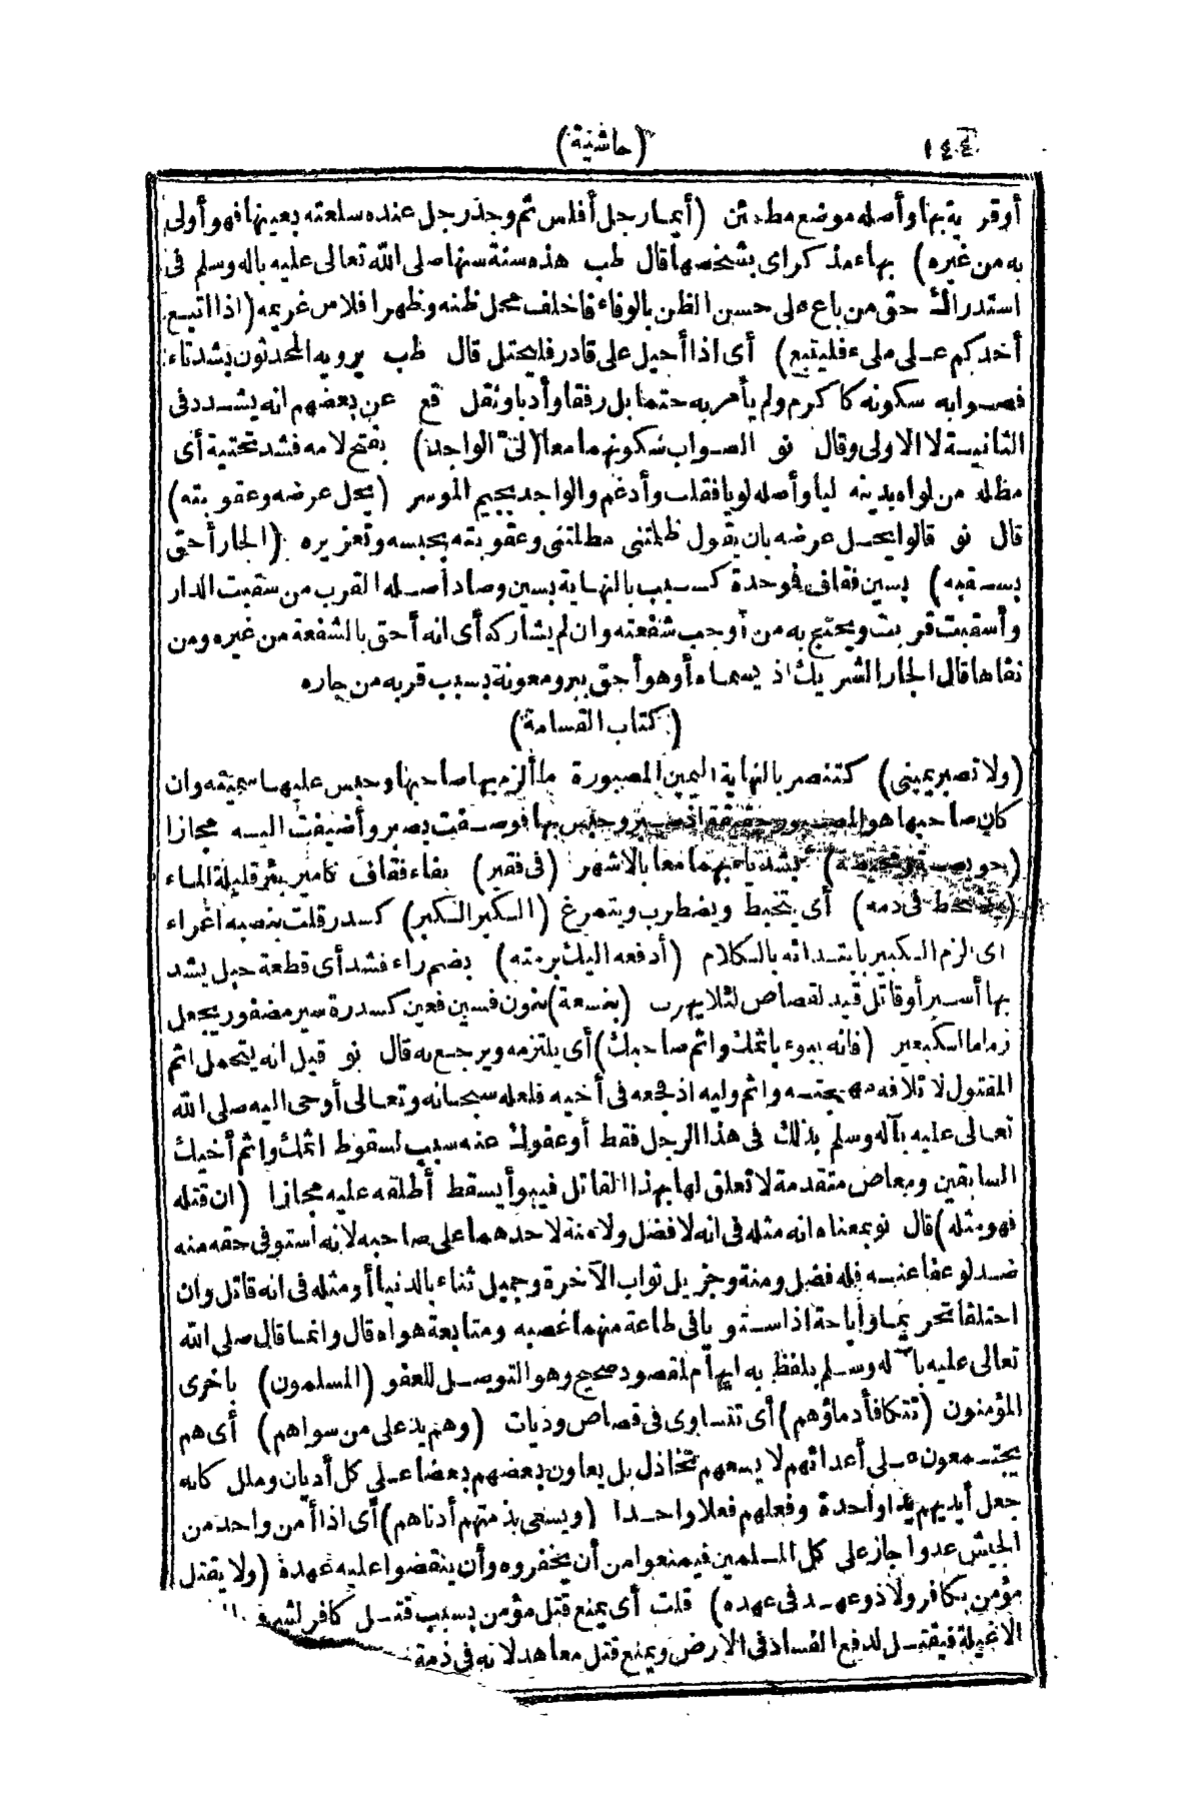 ١٤٤ (حاشية)
أوقرية بها وأصله موضع مطمئن (أيما رجل أفلس ثم وجد رجل عنده سلعته بعينها فهو أولى
به من غيره) بهاء مذكر اى بشخصها قال طب هذه سنة سنها صلى الله تعالى عليه باله وسلم فى
استدراك حق من باع على حسن الظن بالوفاء فاخلف محل ظنه وظهر افلاس غريمه (اذا اتبع
أحدكم على ملىء فليتبع) أى اذا أحيل على قادر فليحتل قال طب يرويه المحدثون بشد تاء
فصوابه سكونه كاكرم ولم يأمر به حتما بل رفقا وأدبا ونقل قع عن بعضهم انه يشدد فى
الثانية لا الاولى وقال نو الصواب سكونهما معا (لىّ الواجد) بفتح لامه فشد تحتية أى
مطله من لواه بدينه ليا وأصله لويا فقلب وأدغم والواجد بجيم الموسر (يحل عرضه وعقوبته)
قال نو قالوا يحل عرضه بان يقول ظلمتنى مطلتنى وعقوبته بحبسه وتعزيره (الجار أحق
بسقبه) بسين فقاف فوحدة كسبب بالنهاية بسين وصاد أصله القرب من سقبت الدار
وأسقبت قربت ويحتج به من أوجب شفعته وان لم يشاركه أى انه أحق بالشفعة من غيره ومن
نفاها قال الجار الشريك اذ يسماه أو هو أحق ببر ومعونة بسبب قربه من جاره
(كتاب القسامة)
(ولا تصبر يمينى) كتنصر بالنهاية اليمين المصبورة ما ألزم بها صاحبها وحبس عليها سميته وان
كان صاحبها هو المصبور حقيقة اذ صبر وحبس بها فوصفت بصبر وأضيفت اليه مجازا
(حويصة ومحيصة) بشد ياءيهما معا بالاشهر (فى فقير) بفاء فقاف كامير بئر قليلة الماء
(يتشحط فى دمه) أى يتخبط ويضطرب ويتمرغ (الكبر الكبر) كسدر قلت بنصبه اغراء
اى الزم الكبير بابتدائه بالكلام (أدفعه اليك برمته) بضم راء فشد أى قطعة حبل يشد
بها أسير أو قاتل قيد لقصاص لئلا يهرب (بنسعة) بنون فسين فعين كسدرة سير مضفور يجعل
زماما لكبعير (فانه يبوء باثمك واثم صاحبك) أى يلتزمه ويرجع به قال نو قيل انه يتحمل اثم
المقتول لاتلافه مهجته واثم وليه اذ فجعه فى أخيه فلعله سبحانه وتعالى أوحى اليه صلى الله
تعالى عليه بآله وسلم بذلك فى هذا الرجل فقط أو عفوك عنه سبب لسقوط اثمك واثم أخيك
السابقين ومعاص متقدمة لا تعلق لها بهذا القاتل فيبوأ يسقط أطلقه عليه مجازا (ان قتله
فهو مثله) قال نو بمعناه انه مثله فى انه لا فضل ولا منة لاحدهما على صاحبه لانه استوفى حقه منه
ضد لو عفا عنه فله فضل ومنة وجزيل ثواب الآخرة وجميل ثناء بالدنيا أو مثله فى انه قاتل وان
اختلفا تحريما واباحة اذ استويا فى طاعة منهما غضبه ومتابعة هواه قال وانما قال صلى الله
تعالى عليه بآله وسلم بلفظ به ايهام لمقصود صحيح وهو التوصل للعفو (المسلمون) باخرى
المؤمنون (تتكافأ دماؤهم) أى تتساوى فى قصاص وديات (وهم يد على من سواهم) أى هم
يجتمعون على أعدائهم لا يسعهم تخاذل بل يعاون بعضهم بعضا على كل أديان وملل كانه
جعل أيديهم يدا واحدة وفعلهم فعلا واحدا (ويسعى بذمتهم أدناهم) أى اذا أمن واحد من
الجيش عدوا جاز على كل المسلمين فيمنعوا من أن يخفروه وأن ينقضوا عليه عهدة (ولا يقتل
مؤمن بكافر ولا ذو عهد فى عهده) قلت أى يمنع قتل مؤمن بسبب قتل كافر
الا غيلة فيقتل لدفع الفساد فى الارض ويمنع قتل معاهد لانه فى ذمة